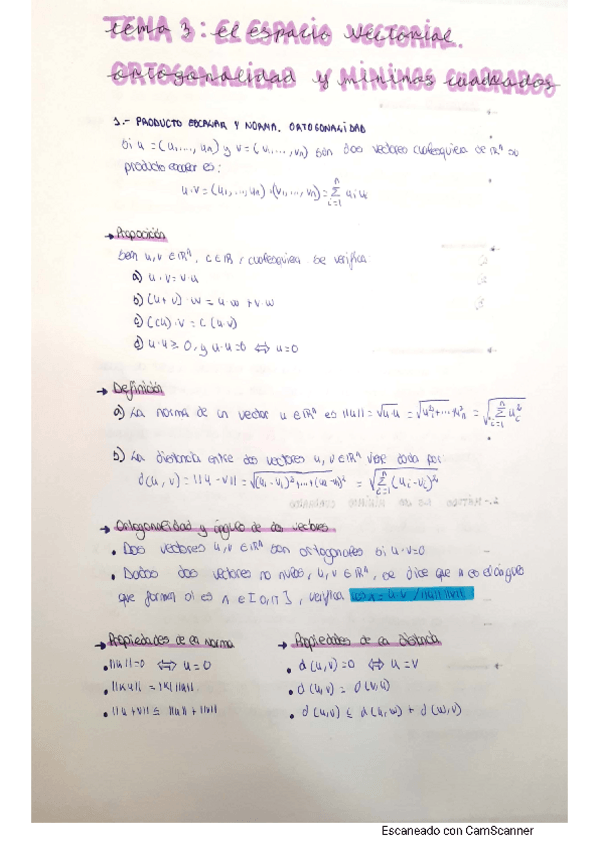 TEMA 3: EL ESPACIO VECTORIAL.
ORTOGONALIDAD Y MÍNIMOS CUADRADOS
1.- PRODUCTO ESCALAR Y NORMA. ORTOGONALIDAD
Si u = (u₁,..., uₙ) y v = (v₁,..., vₙ) son dos vectores cualesquiera de ℝⁿ su
producto escalar es:
u·v = (u₁,..., uₙ)·(v₁,..., vₙ) = Σᵢ₌₁ⁿ uᵢvᵢ
→ Proposición
Sean u, v ∈ ℝⁿ, c ∈ ℝ, cualesquiera se verifica
a) u·v = v·u
b) (u+v)·w = u·w + v·w
c) (cu)·v = c(u·v)
d) u·u ≥ 0, y u·u=0 ⇔ u=0
→ Definición
a) La norma de un vector u ∈ ℝⁿ es ||u|| = √u·u = √u₁²+...+uₙ² = √Σᵢ₌₁ⁿ uᵢ²
b) La distancia entre dos vectores u, v ∈ ℝⁿ viene dada por:
d(u, v) = ||u - v|| = √(u₁-v₁)²+...+(uₙ-vₙ)² = √Σᵢ₌₁ⁿ (uᵢ-vᵢ)²
→ Ortogonalidad y ángulos de dos vectores
• Dos vectores u, v ∈ ℝⁿ son ortogonales si u·v=0
• Dados dos vectores no nulos, u, v ∈ ℝⁿ, se dice que es el ángulo
que forma si ∈ [0, π], verifica = u·v / ||u|| ||v||
→ Propiedades de la norma
• ||u||=0 ⇔ u=0
• ||ku|| = |k| ||u||
• ||u+v|| ≤ ||u|| + ||v||
→ Propiedades de la distancia
• d(u,v)=0 ⇔ u=v
• d(u,v) = d(v,u)
• d(u,v) ≤ d(u,w) + d(w,v)
Escaneado con CamScanner